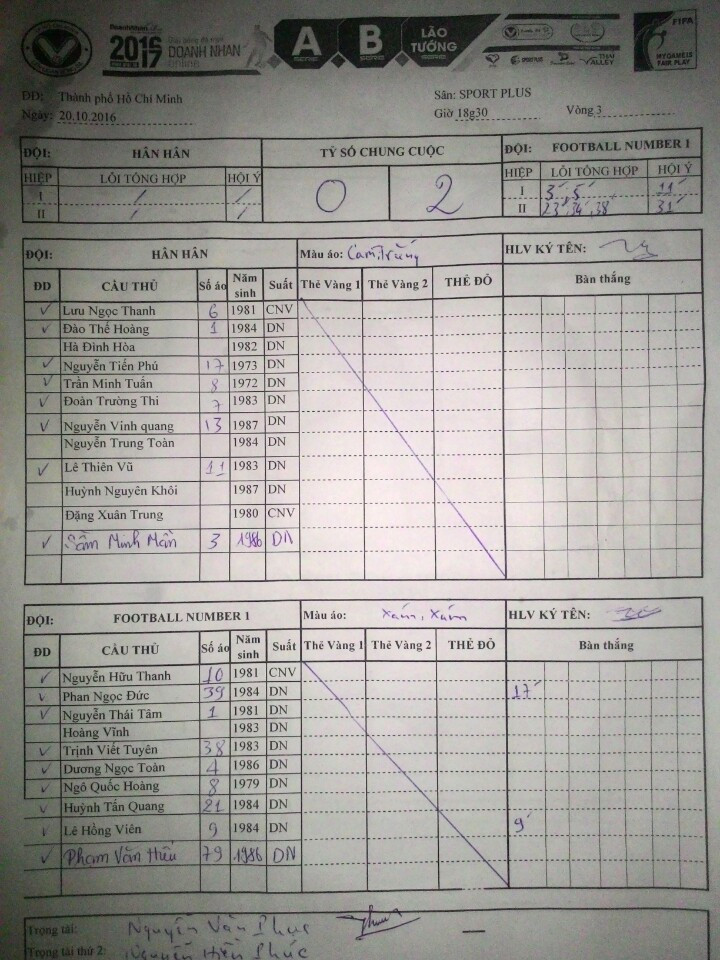 2016
17
DOANH NHAN
A
B
LÃO
TƯỚNG
FIFA
MY GAME IS
FAIR PLAY
ĐĐ: Thành phố Hồ Chí Minh Sân: SPORT PLUS
Ngày: 20.10.2016 Giờ 18g30 Vòng 3
ĐỘI: HÂN HÂN TỶ SỐ CHUNG CUỘC ĐỘI: FOOTBALL NUMBER 1
HIỆP LỖI TỔNG HỢP HỘI Ý 0 2 HIỆP LỖI TỔNG HỢP HỘI Ý
I / / I 3', 5' 11'
II / / II 23', 34', 38 31'
ĐỘI: HÂN HÂN Màu áo: Cam, Trắng HLV KÝ TÊN:
ĐD CẦU THỦ Số áo Năm sinh Suất Thẻ Vàng 1 Thẻ Vàng 2 THẺ ĐỎ Bàn thắng
✓ Lưu Ngọc Thanh 6 1981 CNV
✓ Đào Thế Hoàng 1 1984 DN
Hà Đình Hòa 1982 DN
✓ Nguyễn Tiến Phú 17 1973 DN
✓ Trần Minh Tuấn 8 1972 DN
✓ Đoàn Trường Thi 7 1983 DN
✓ Nguyễn Vinh quang 13 1987 DN
Nguyễn Trung Toàn 1984 DN
✓ Lê Thiên Vũ 11 1983 DN
Huỳnh Nguyên Khôi 1987 DN
Đặng Xuân Trung 1980 CNV
✓ Sầm Minh Mẩn 3 1986 DN
ĐỘI: FOOTBALL NUMBER 1 Màu áo: Xám, Xám HLV KÝ TÊN:
ĐD CẦU THỦ Số áo Năm sinh Suất Thẻ Vàng 1 Thẻ Vàng 2 THẺ ĐỎ Bàn thắng
✓ Nguyễn Hữu Thanh 10 1981 CNV
✓ Phan Ngọc Đức 39 1984 DN 17'
✓ Nguyễn Thái Tâm 1 1981 DN
Hoàng Vĩnh 1983 DN
✓ Trịnh Viết Tuyên 38 1983 DN
✓ Dương Ngọc Toàn 4 1986 DN
✓ Ngô Quốc Hoàng 8 1979 DN
✓ Huỳnh Tấn Quang 21 1984 DN
✓ Lê Hồng Viên 9 1984 DN 9'
✓ Phạm Văn Hiếu 79 1986 DN
Trọng tài: Nguyễn Văn Phục
Trọng tài thứ 2: Nguyễn Hiền Phúc